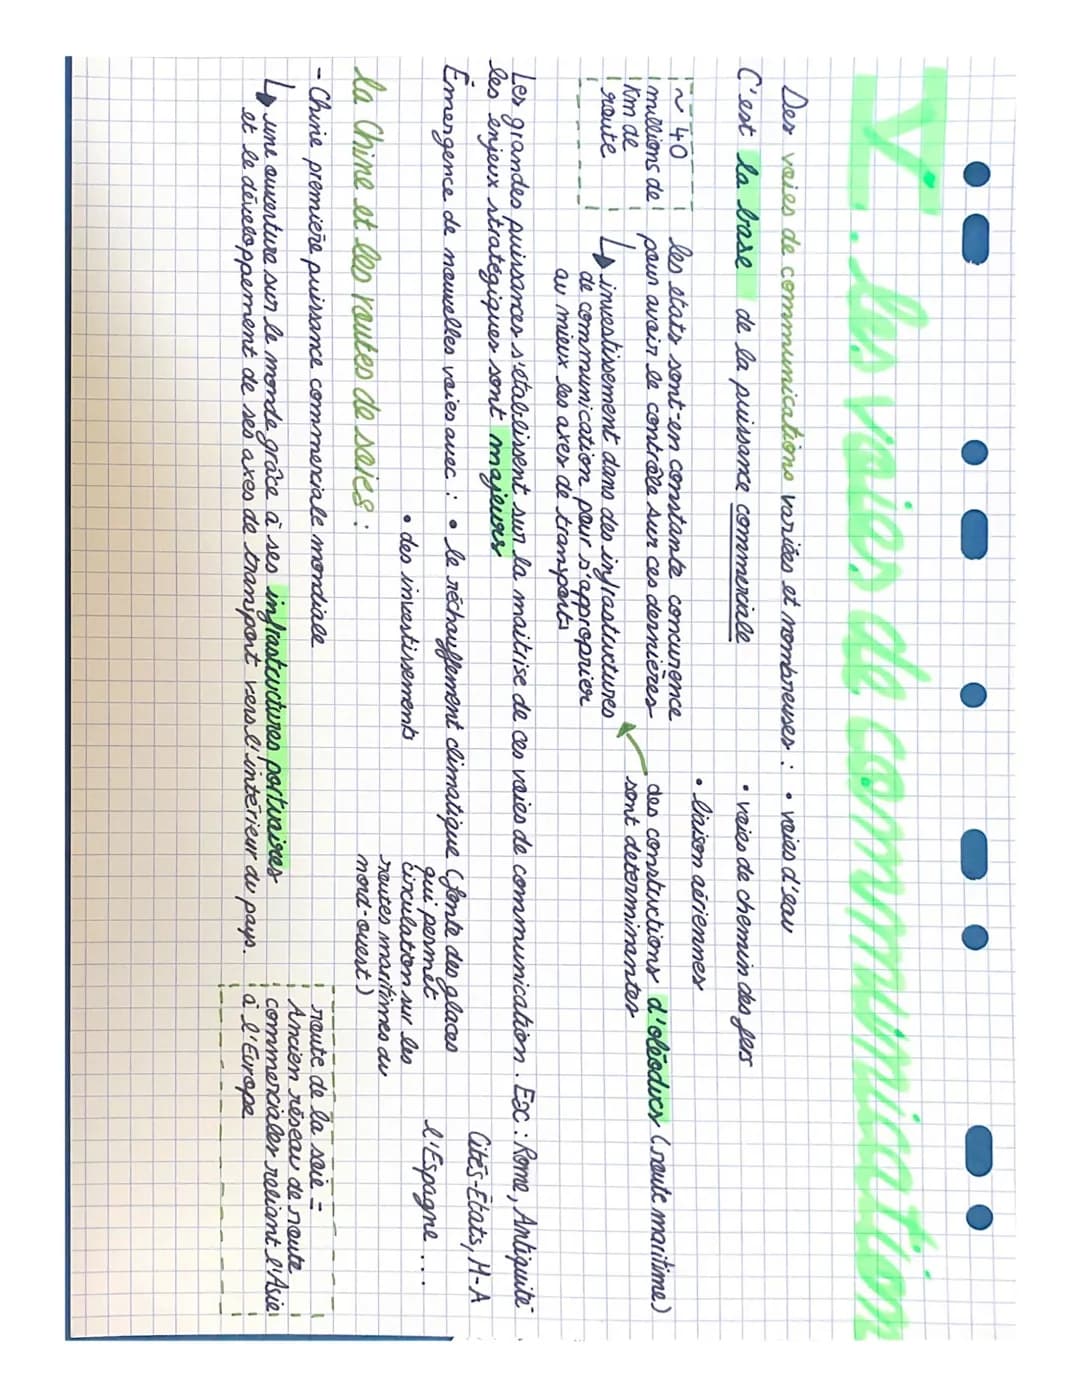 V. les voies de communication
Des voies de communications variées et nombreuses : • voies d'eau
• voies de chemin des fers
• liaison aériennes
C'est la base de la puissance commerciale
~ 40
millions de
km de
route
les états sont en constante concurence
pour avoir le contrôle sur ces dernières
↳ investissement dans des infrastuctures
de communication pour s'approprier
au mieux les axes de transports
des constuctions d'oléoducs (route maritime)
sont determinantes
Les grandes puissances s'établissent sur la maitrise de ces voies de communication. Ex : Rome, Antiquité
les enjeux stratégiques sont majeurs
Cités-Etats, M-A
l'Espagne ....
Émergence de nouvelles voies avec : • le réchauffement climatique (fonte des glaces
qui permet
circulation sur les
routes maritimes du
nord-ouest)
• des investissements
la Chine et les routes de soies :
- Chine première puissance commerciale mondiale
↳ une ouverture sur le monde grâce à ses infrastuctures portuaires
et le développement de ses axes de transport vers l'intérieur du pays.
route de la soie =
Ancien réseau de route
commerciales reliant l'Asie
à l'Europe